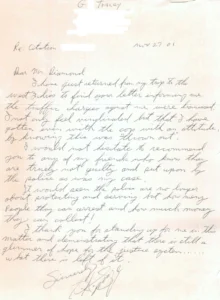 G. Tracy
Re: Citation Nov 27 01
Dear Mr. Diamond
I have just returned from my trip to the
west Indies to find your letter informing me
the traffic charges against me were dismissed.
I not only feel vindicated but that I have
gotten even with the cop with an attitude
by knowing this was thrown out.
I would not hesitate to recommend
you to any of my friends who know they
are truely not guilty and set upon by
the police as was my case.
It would seem the police are no longer
about protecting and serving but how many
people they can arrest and how much money
they can collect!
I thank you for standing up for me in this
matter and demonstrating that there is still a
glimmer of hope for the justice system.....
what there is left of it.
Sincerely